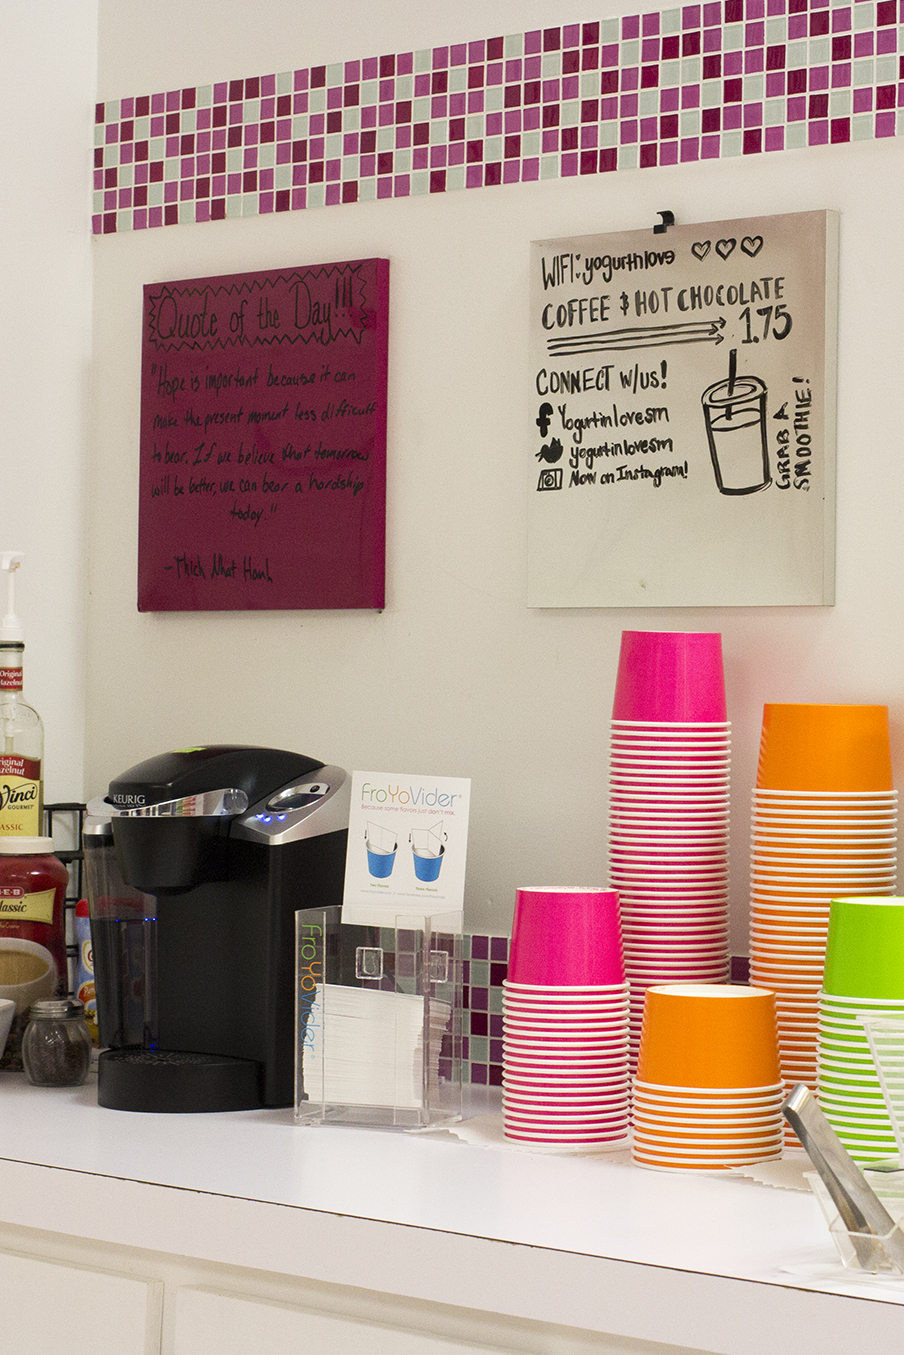 Quote of the Day!!!
"Hope is important because it can
make the present moment less difficult
to bear. If we believe that tomorrow
will be better, we can bear a hardship
today."
-Thich Nhat Hanh
WIFI: yogurtnlove
COFFEE $ HOT CHOCOLATE
1.75
CONNECT W/US!
f Yogurtinlovesm
yogurtinlovesm
Now on Instagram!
GRAB A
SMOOTHIE!
Original
Hazelnut
Original
Hazelnut
Vinci
GOURMET
CLASSIC
Classic
KEURIG
FroYoVider
Because some flavors just don't mix.
FroYoVider